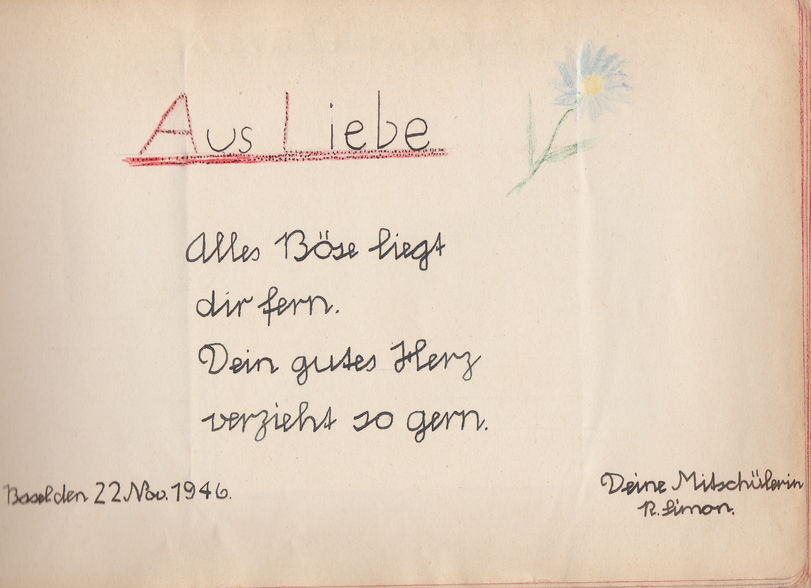 Aus Liebe
Alles Böse liegt
dir fern.
Dein gutes Herz
verzieht so gern.
Basel den 22. Nov. 1946.
Deine Mitschülerin
R. Simon.